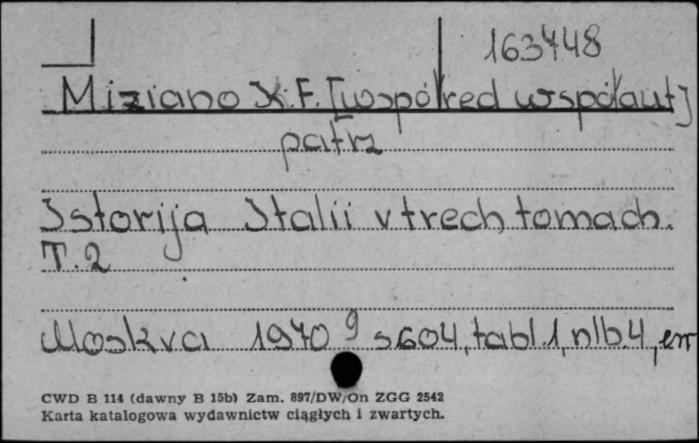 163448
Miziano K.F. [współred współaut]
patrz
Istorija Italii v trech tomach.
T. 2
Moskva 1970 s 604, tabl. 1, nlb. 4, err
CWD B 114 (dawny B 15b) Zam. 897/DW/On ZGG 2542
Karta katalogowa wydawnictw ciągłych i zwartych.